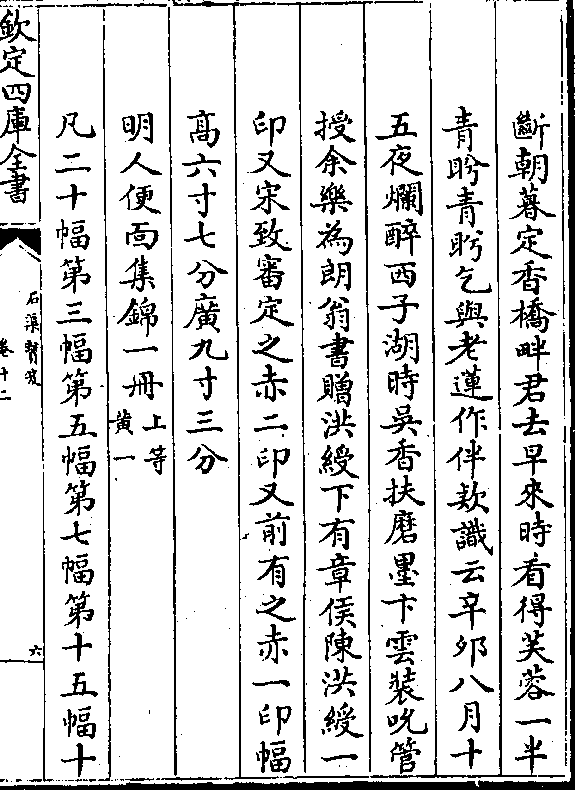 斷朝暮定香橋畔君去早來時看得芙蓉一半
青盼青盼乞與老蓮作伴欵識云辛夘八月十
五夜爛醉西子湖時吳香扶磨墨卞雲裝吮管
授余樂為朗翁書贈洪綬下有章侯陳洪綬一
印又宋致審定之赤二印又前有之赤一印幅
髙六寸七分廣九寸三分
明人便面集錦一冊上等黄一
凡二十幅第三幅第五幅第七幅第十五幅十
欽定四庫全書
石渠寶笈
卷十二
六